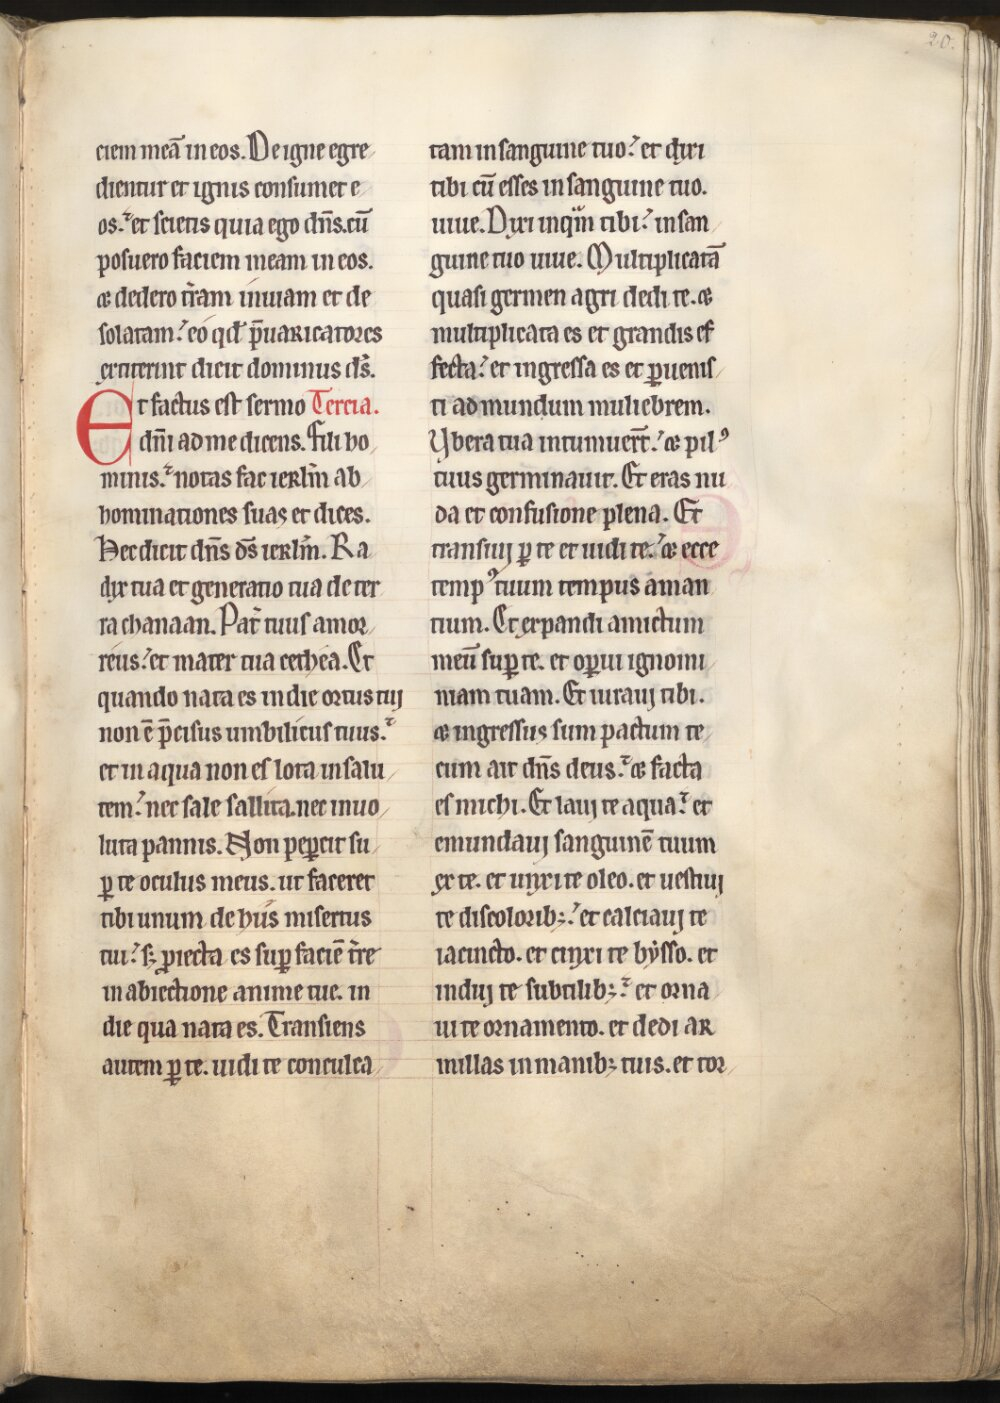 20.
ciem meā in eos. De igne egre
dientur et ignis consumet e
os. et scietis quia ego dn̄s. cū
posuero faciem meam in eos.
et dedero tr̄am inuiam et de
solatam. eo qd̓ p̄uaricatores
extiterint dicit dominus ds̄.
Et factus est sermo Tercia.
dn̄i ad me dicens. Fili ho
minis. notas fac ierlm̄ ab
hominationes suas et dices.
Hec dicit dn̄s ds̄ ierlm̄. Ra
dix tua et generatio tua de ter
ra chanaan. Pat̄ tuus amor
reus. et mater tua cethea. Et
quando nata es in die ortus tuj
non ē p̄cisus umbilicus tuus.
et in aqua non es lota in salu
tem. nec sale sallita. nec inuo
luta pannis. Non peꝑcit su
ꝑ te oculus meus. ut faceret
tibi unum de hiis misertus
tui. sꝫ ꝓiecta es suꝑ faciē tr̄e
in abiectione anime tue. in
die qua nata es. Transiens
autem ꝑ te. uidi te conculca
tam in sanguine tuo. et dixi
tibi cū esses in sanguine tuo.
uiue. Dixi inquā tibi. in san
guine tuo uiue. Multiplicatā
quasi germen agri dedi te. et
multiplicata es et grandis ef
fecta. et ingressa es et ꝑuenis
ti ad mundum muliebrem.
Vbera tua intumuer̄t. et pilꝰ
tuus germinauit. Et eras nu
da et confusione plena. Et
transiuj ꝑ te et uidi te. et ecce
tempꝰ tuum tempus aman
tium. Et expandi amictum
meū suꝑ te. et oꝑui ignomi
niam tuam. Et iurauj tibi.
et ingressus sum pactum te
cum ait dn̄s deus. et facta
es michi. Et lauj te aqua. et
emundauj sanguinē tuum
ex te. et unxi te oleo. et uestiuj
te discoloribꝫ. et calciauj te
iacincto. et cinxi te bysso. et
induj te subtilibꝫ. et orna
ui te ornamento. et dedi ar
millas in manibꝫ tuis. et tor